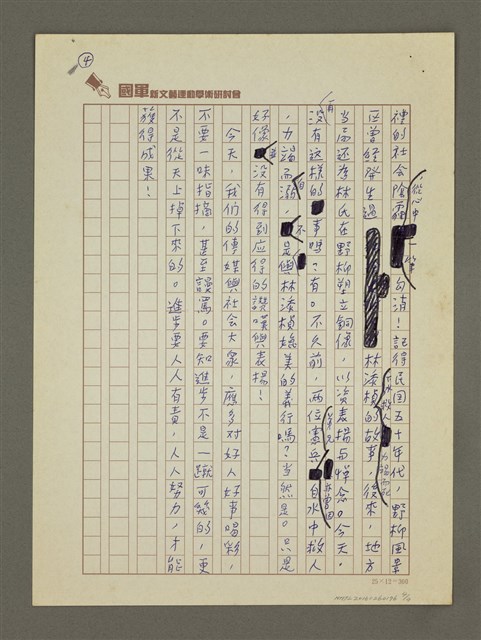 ④
國軍新文藝運動學術研討會
裡的社会陰霾從心中一筆勾消！記得民国五十年代，野柳風景
区曾經發生過林添禎下水救人力竭而死的故事，後來，地方
当局还為林氏在野柳塑立銅像，以资表揚与惮念。今天，
沒有这樣的事嗎？有。不久前，兩位憲兵弟兄自水中救人
，力竭而溺，不是與林添禎媲美的義行嗎？当然是。只是
好像並没有得到应得的讚嘆與表揚！
今天，我们的傳媒與社会大衆，應多对好人好事喝彩，
不要一味指摘，甚至謾罵。要知進步不是一蹴可幾的，更
不是從天上掉下來的。進步要人人有責，人人努力，才能
獲得成果！
25×12＝300